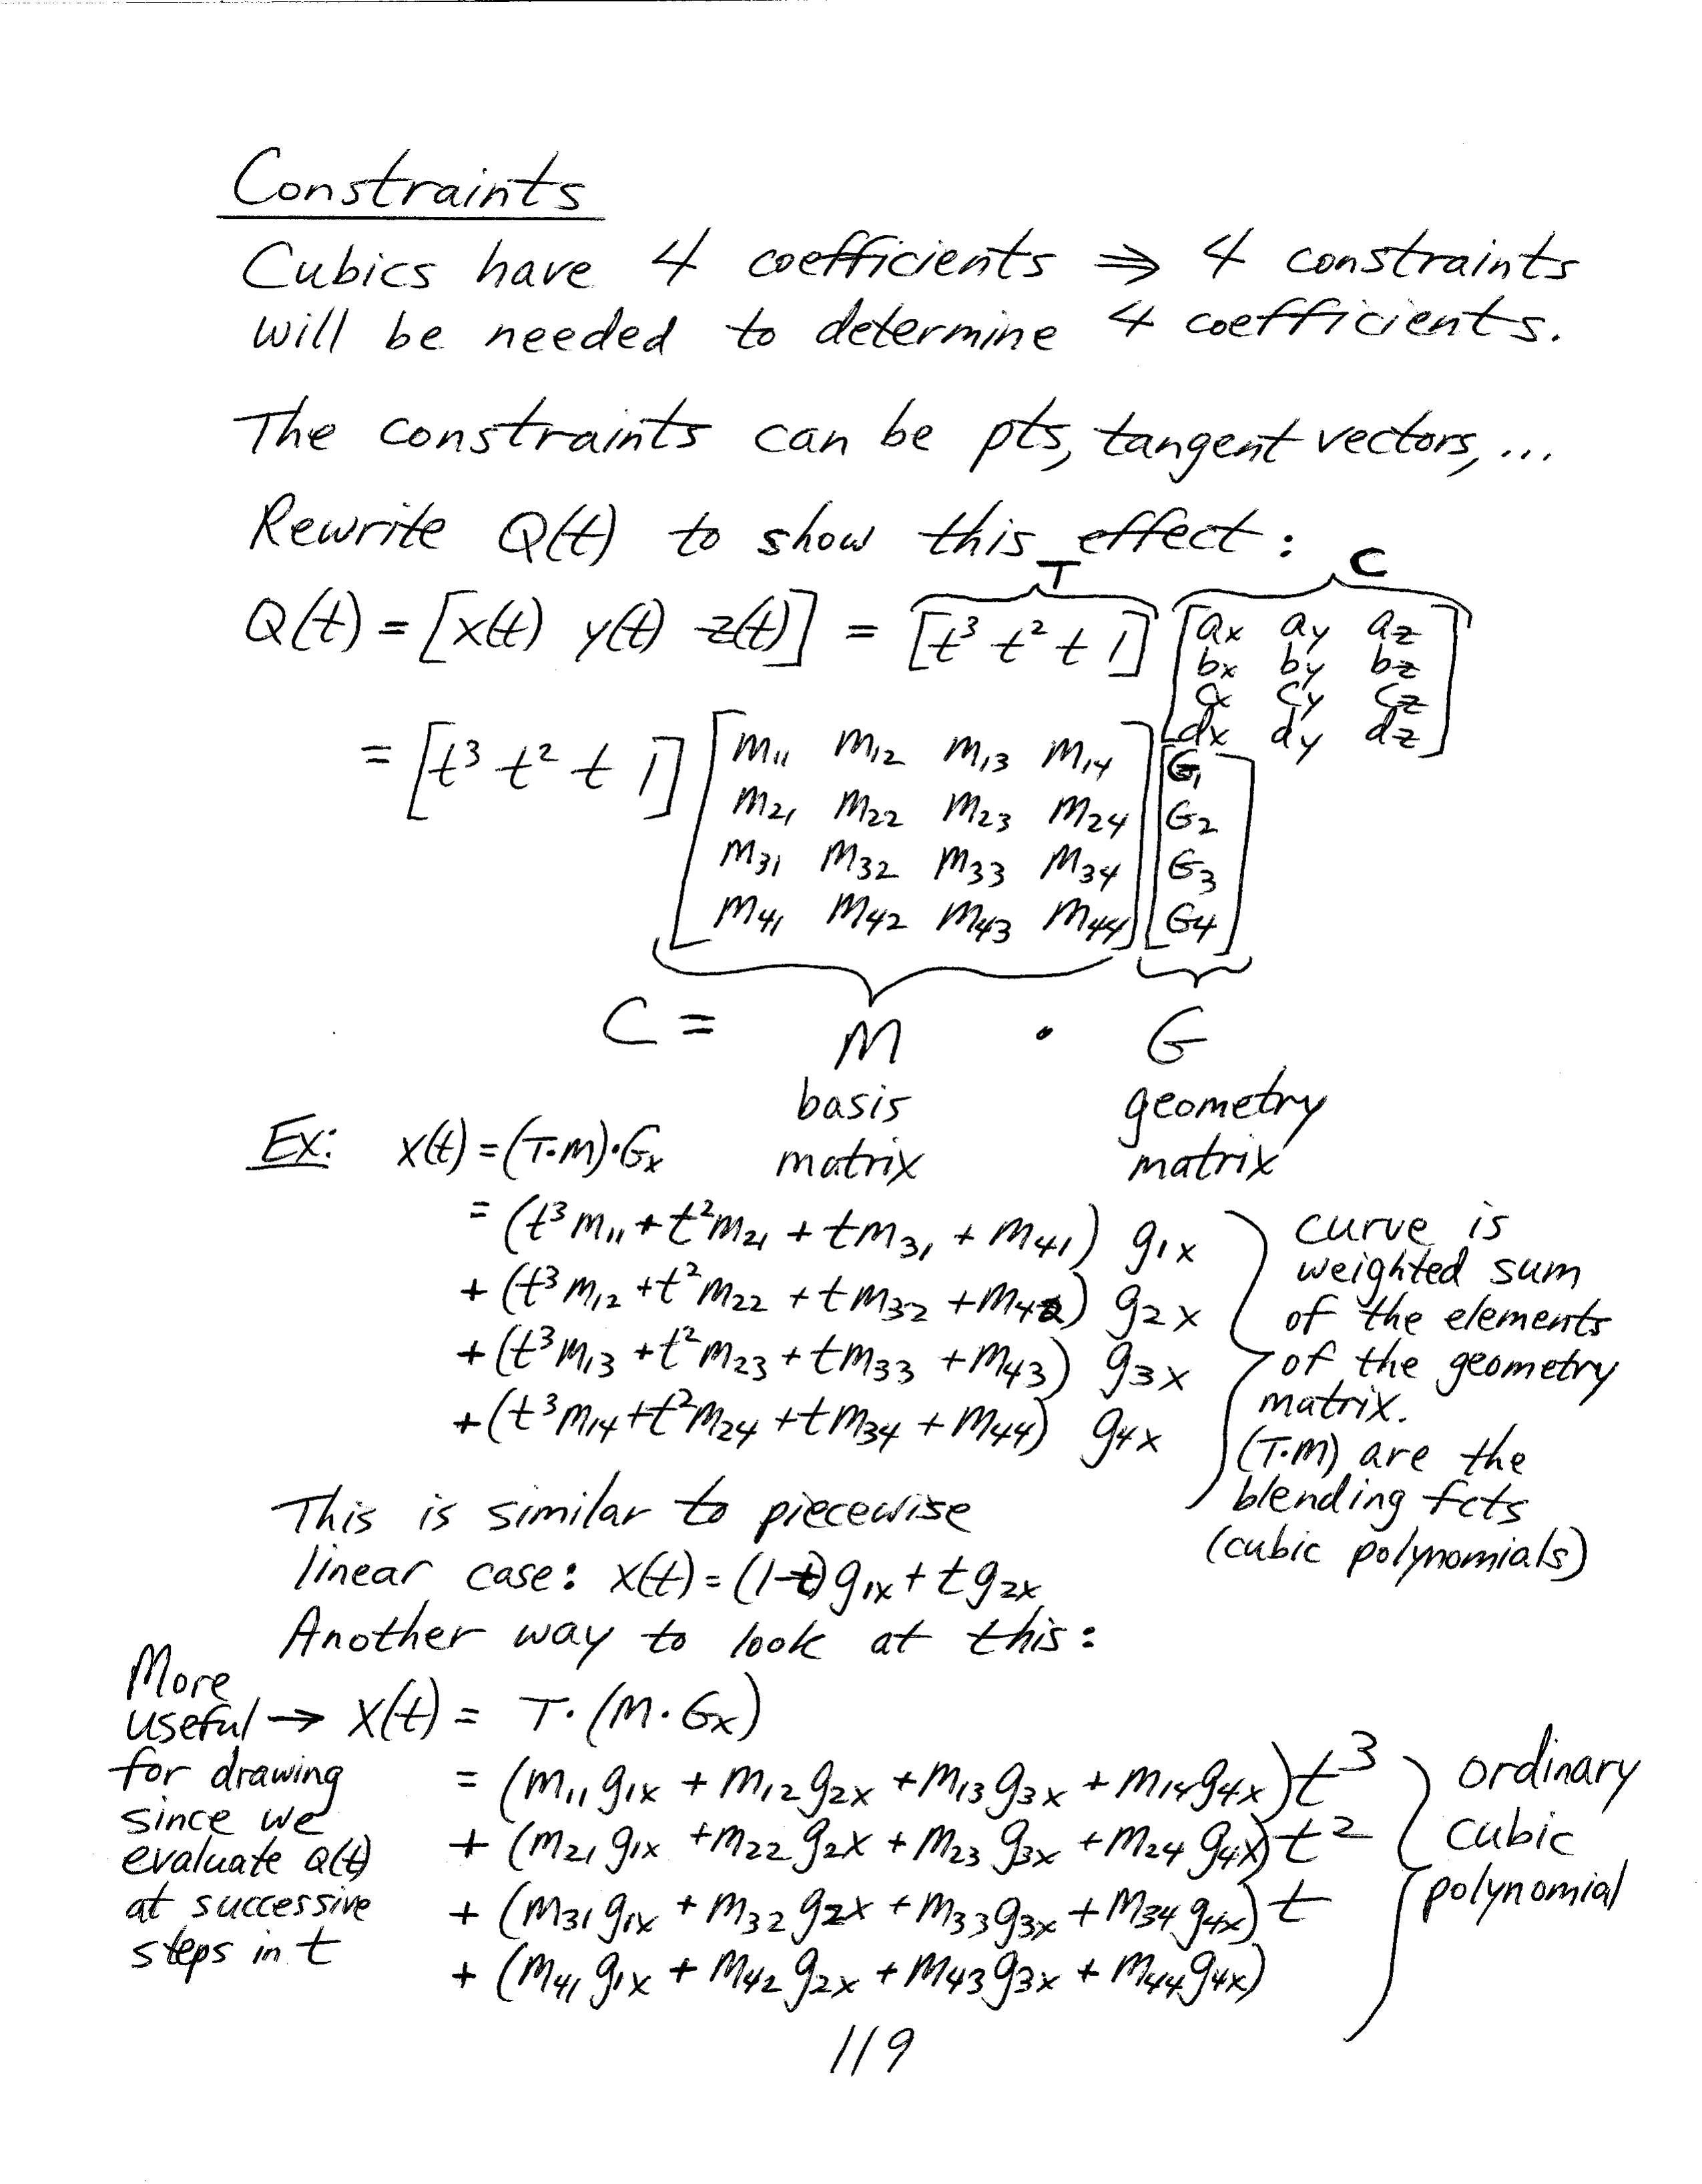 Constraints
Cubics have 4 coefficients ⇒ 4 constraints
will be needed to determine 4 coefficients.
The constraints can be pts, tangent vectors, ...
Rewrite Q(t) to show this effect:
T C
Q(t) = [x(t) y(t) z(t)] = [t³ t² t 1] [ax ay az
bx by bz
cx cy cz
dx dy dz]
= [t³ t² t 1] [m₁₁ m₁₂ m₁₃ m₁₄] [G₁
m₂₁ m₂₂ m₂₃ m₂₄ G₂
m₃₁ m₃₂ m₃₃ m₃₄ G₃
m₄₁ m₄₂ m₄₃ m₄₄ G₄]
C = M · G
basis geometry
matrix matrix
Ex: x(t) = (T·M)·Gx
= (t³m₁₁ + t²m₂₁ + tm₃₁ + m₄₁) g₁x
+ (t³m₁₂ + t²m₂₂ + tm₃₂ + m₄₂) g₂x
+ (t³m₁₃ + t²m₂₃ + tm₃₃ + m₄₃) g₃x
+ (t³m₁₄ + t²m₂₄ + tm₃₄ + m₄₄) g₄x
curve is
weighted sum
of the elements
of the geometry
matrix.
(T·M) are the
blending fcts
(cubic polynomials)
This is similar to piecewise
linear case: x(t) = (1-t)g₁x + tg₂x
Another way to look at this:
More
useful →
for drawing
since we
evaluate Q(t)
at successive
steps in t
x(t) = T·(M·Gx)
= (m₁₁g₁x + m₁₂g₂x + m₁₃g₃x + m₁₄g₄x)t³
+ (m₂₁g₁x + m₂₂g₂x + m₂₃g₃x + m₂₄g₄x)t²
+ (m₃₁g₁x + m₃₂g₂x + m₃₃g₃x + m₃₄g₄x)t
+ (m₄₁g₁x + m₄₂g₂x + m₄₃g₃x + m₄₄g₄x)
ordinary
cubic
polynomial
119